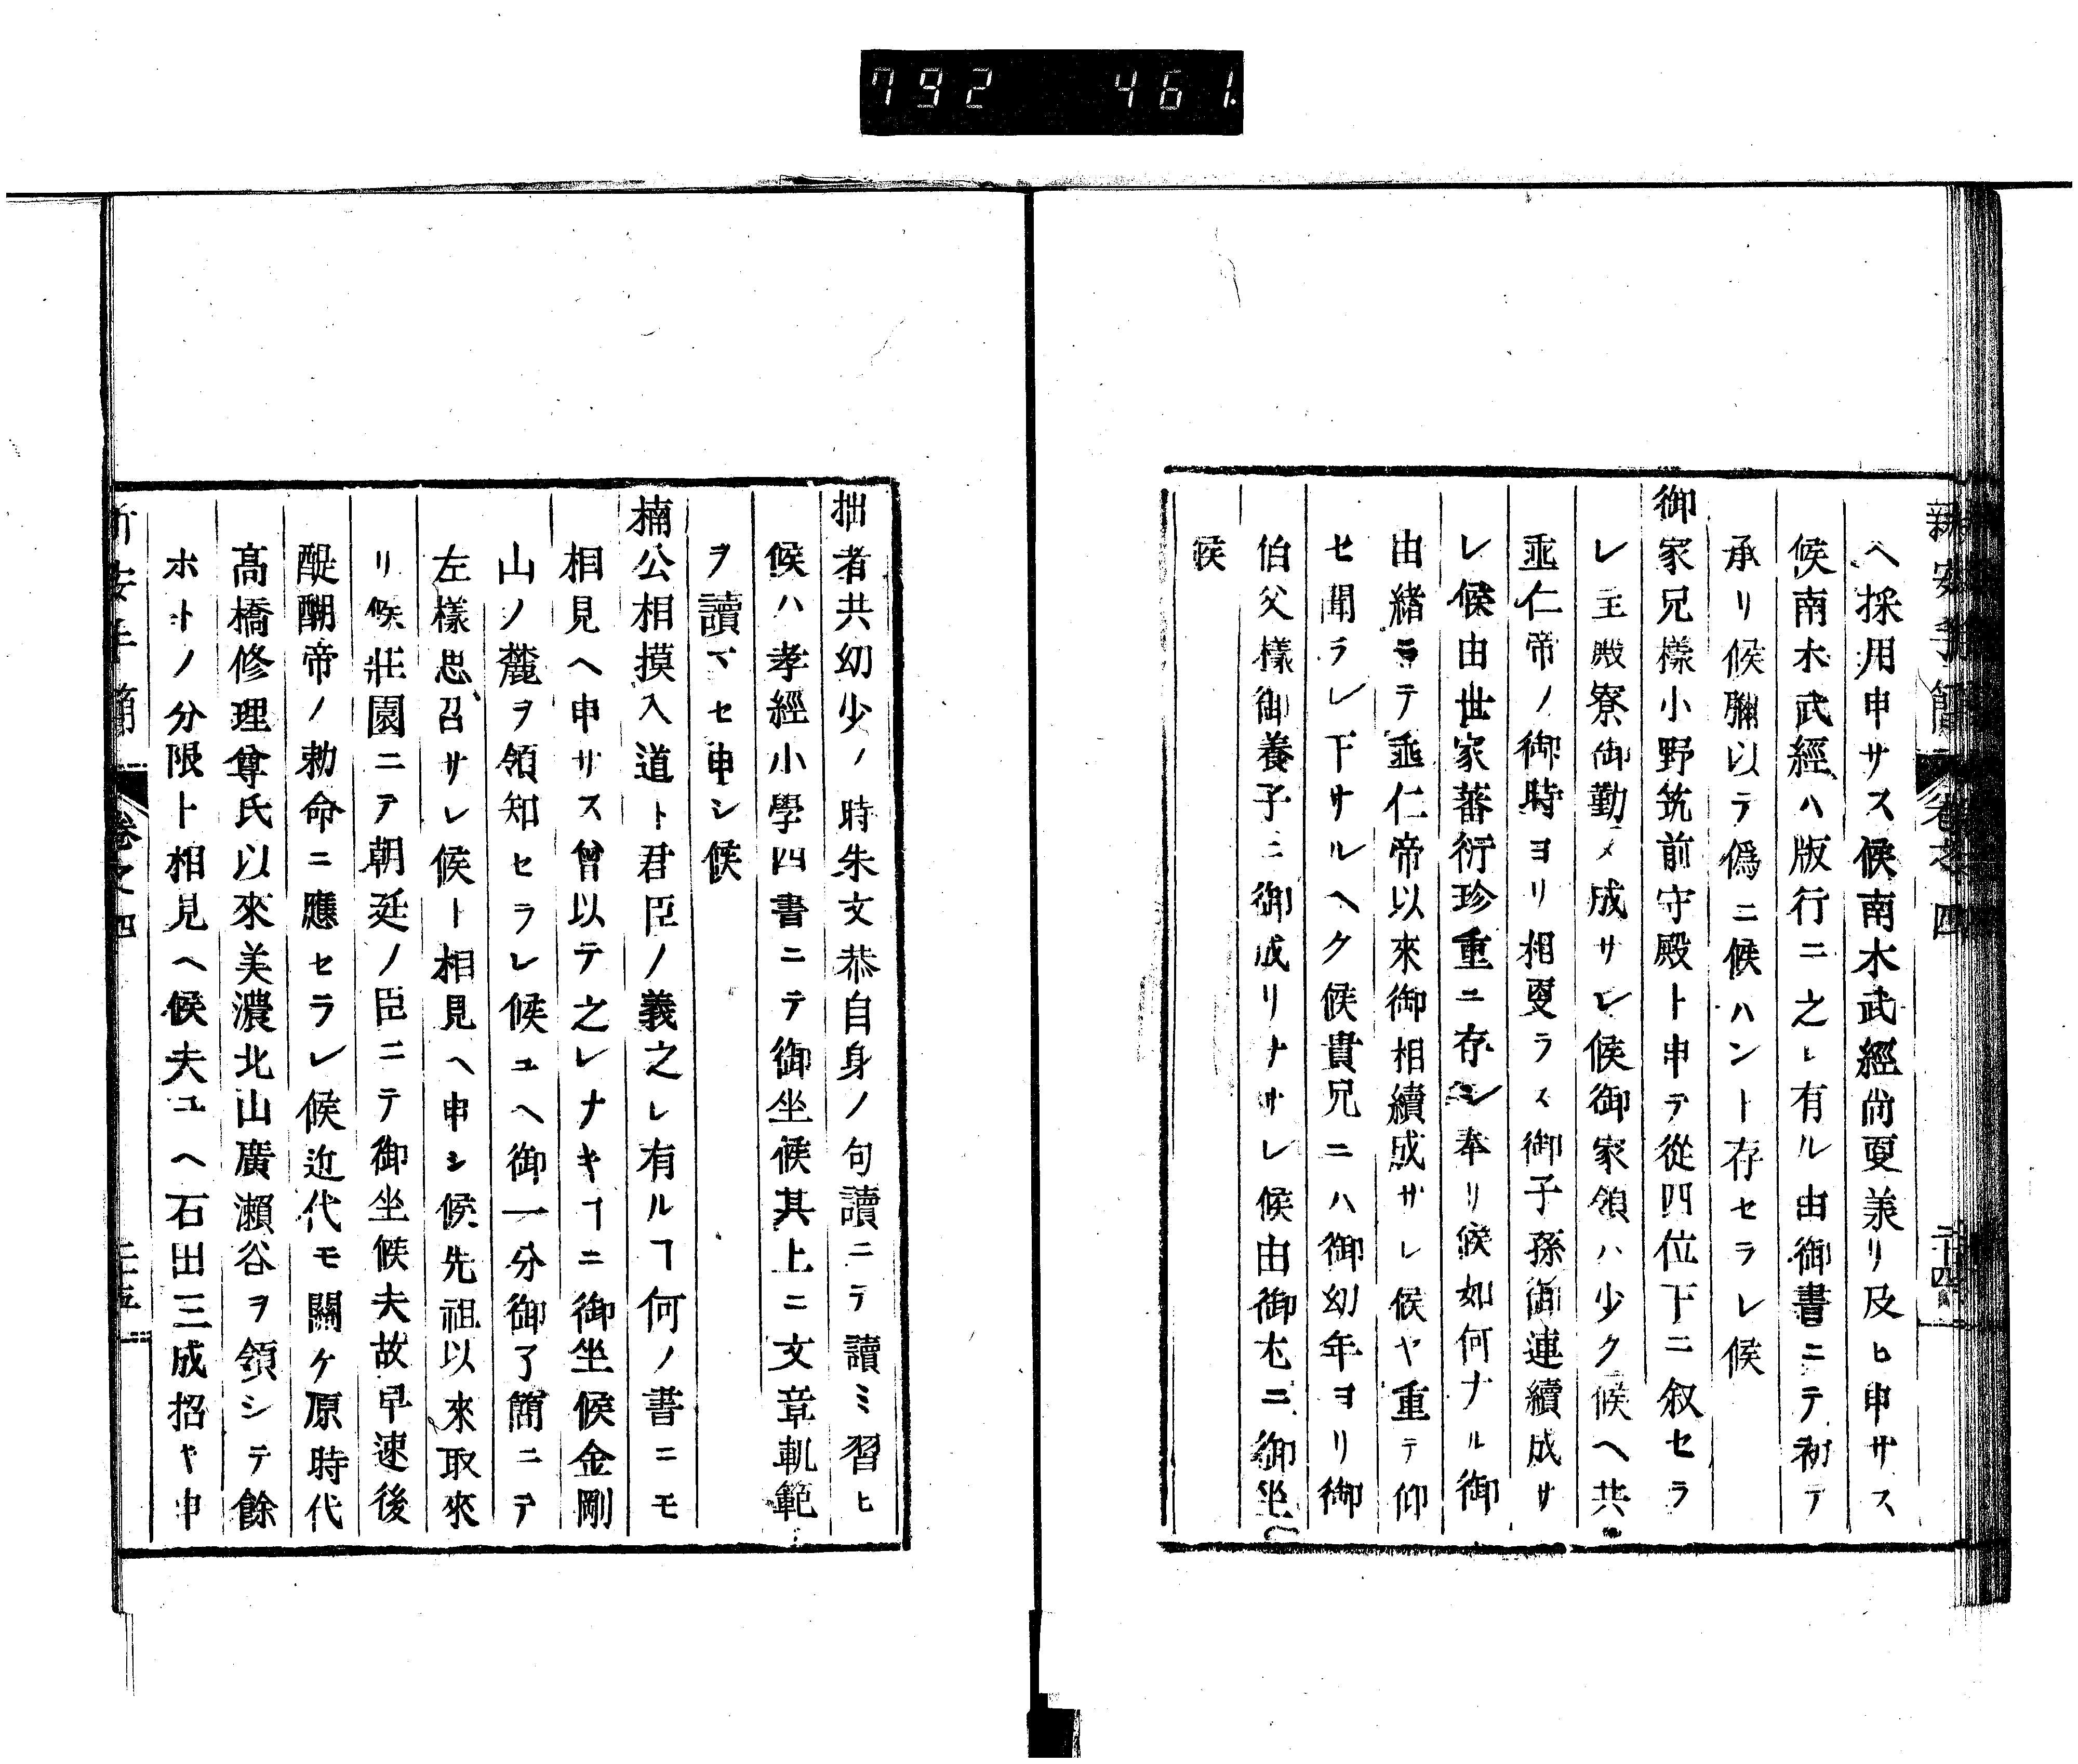 792 461.
新安手簡 卷之四 二十四
ヘ採用申サス候南木武經尚更義リ及ヒ申サス
候南木武經ハ版行ニ之レ有ル由御書ニテ初テ
承リ候彌以テ僞ニ候ハント存セラレ候
御家兄樣小野筑前守殿ト申テ從四位下ニ叙セラ
レ主殿寮御勤メ成サレ候御家領ハ少ク候ヘ共
垂仁帝ノ御時ヨリ相更ラス御子孫御連續成サ
レ候由世家蕃衍珍重ニ存シ奉リ候如何ナル御
由緒ニテ垂仁帝以來御相續成サレ候ヤ重テ仰
セ聞ラレ下サルヘク候貴兄ニハ御幼年ヨリ御
伯父樣御養子ニ御成リナサレ候由御尤ニ御坐
候
拙者共幼少ノ時朱文恭自身ノ句讀ニテ讀ミ習ヒ
候ハ孝經小學四書ニテ御坐候其上ニ文章軌範
ヲ讀マセ申シ候
楠公相摸入道ト君臣ノ義之レ有ルヿ何ノ書ニモ
相見ヘ申サス曾以テ之レナキヿニ御坐候金剛
山ノ麓ヲ領知セラレ候ユヘ御一分御了簡ニテ
左樣思召サレ候ト相見ヘ申シ候先祖以來取來
リ候莊園ニテ朝廷ノ臣ニテ御坐候夫故早速後
醍醐帝ノ勅命ニ應セラレ候近代モ關ケ原時代
髙橋修理尊氏以來美濃北山廣瀨谷ヲ領シテ餘
ホトノ分限ト相見ヘ候夫ユヘ石田三成招ヤ申
新安手簡 卷之四 二十五